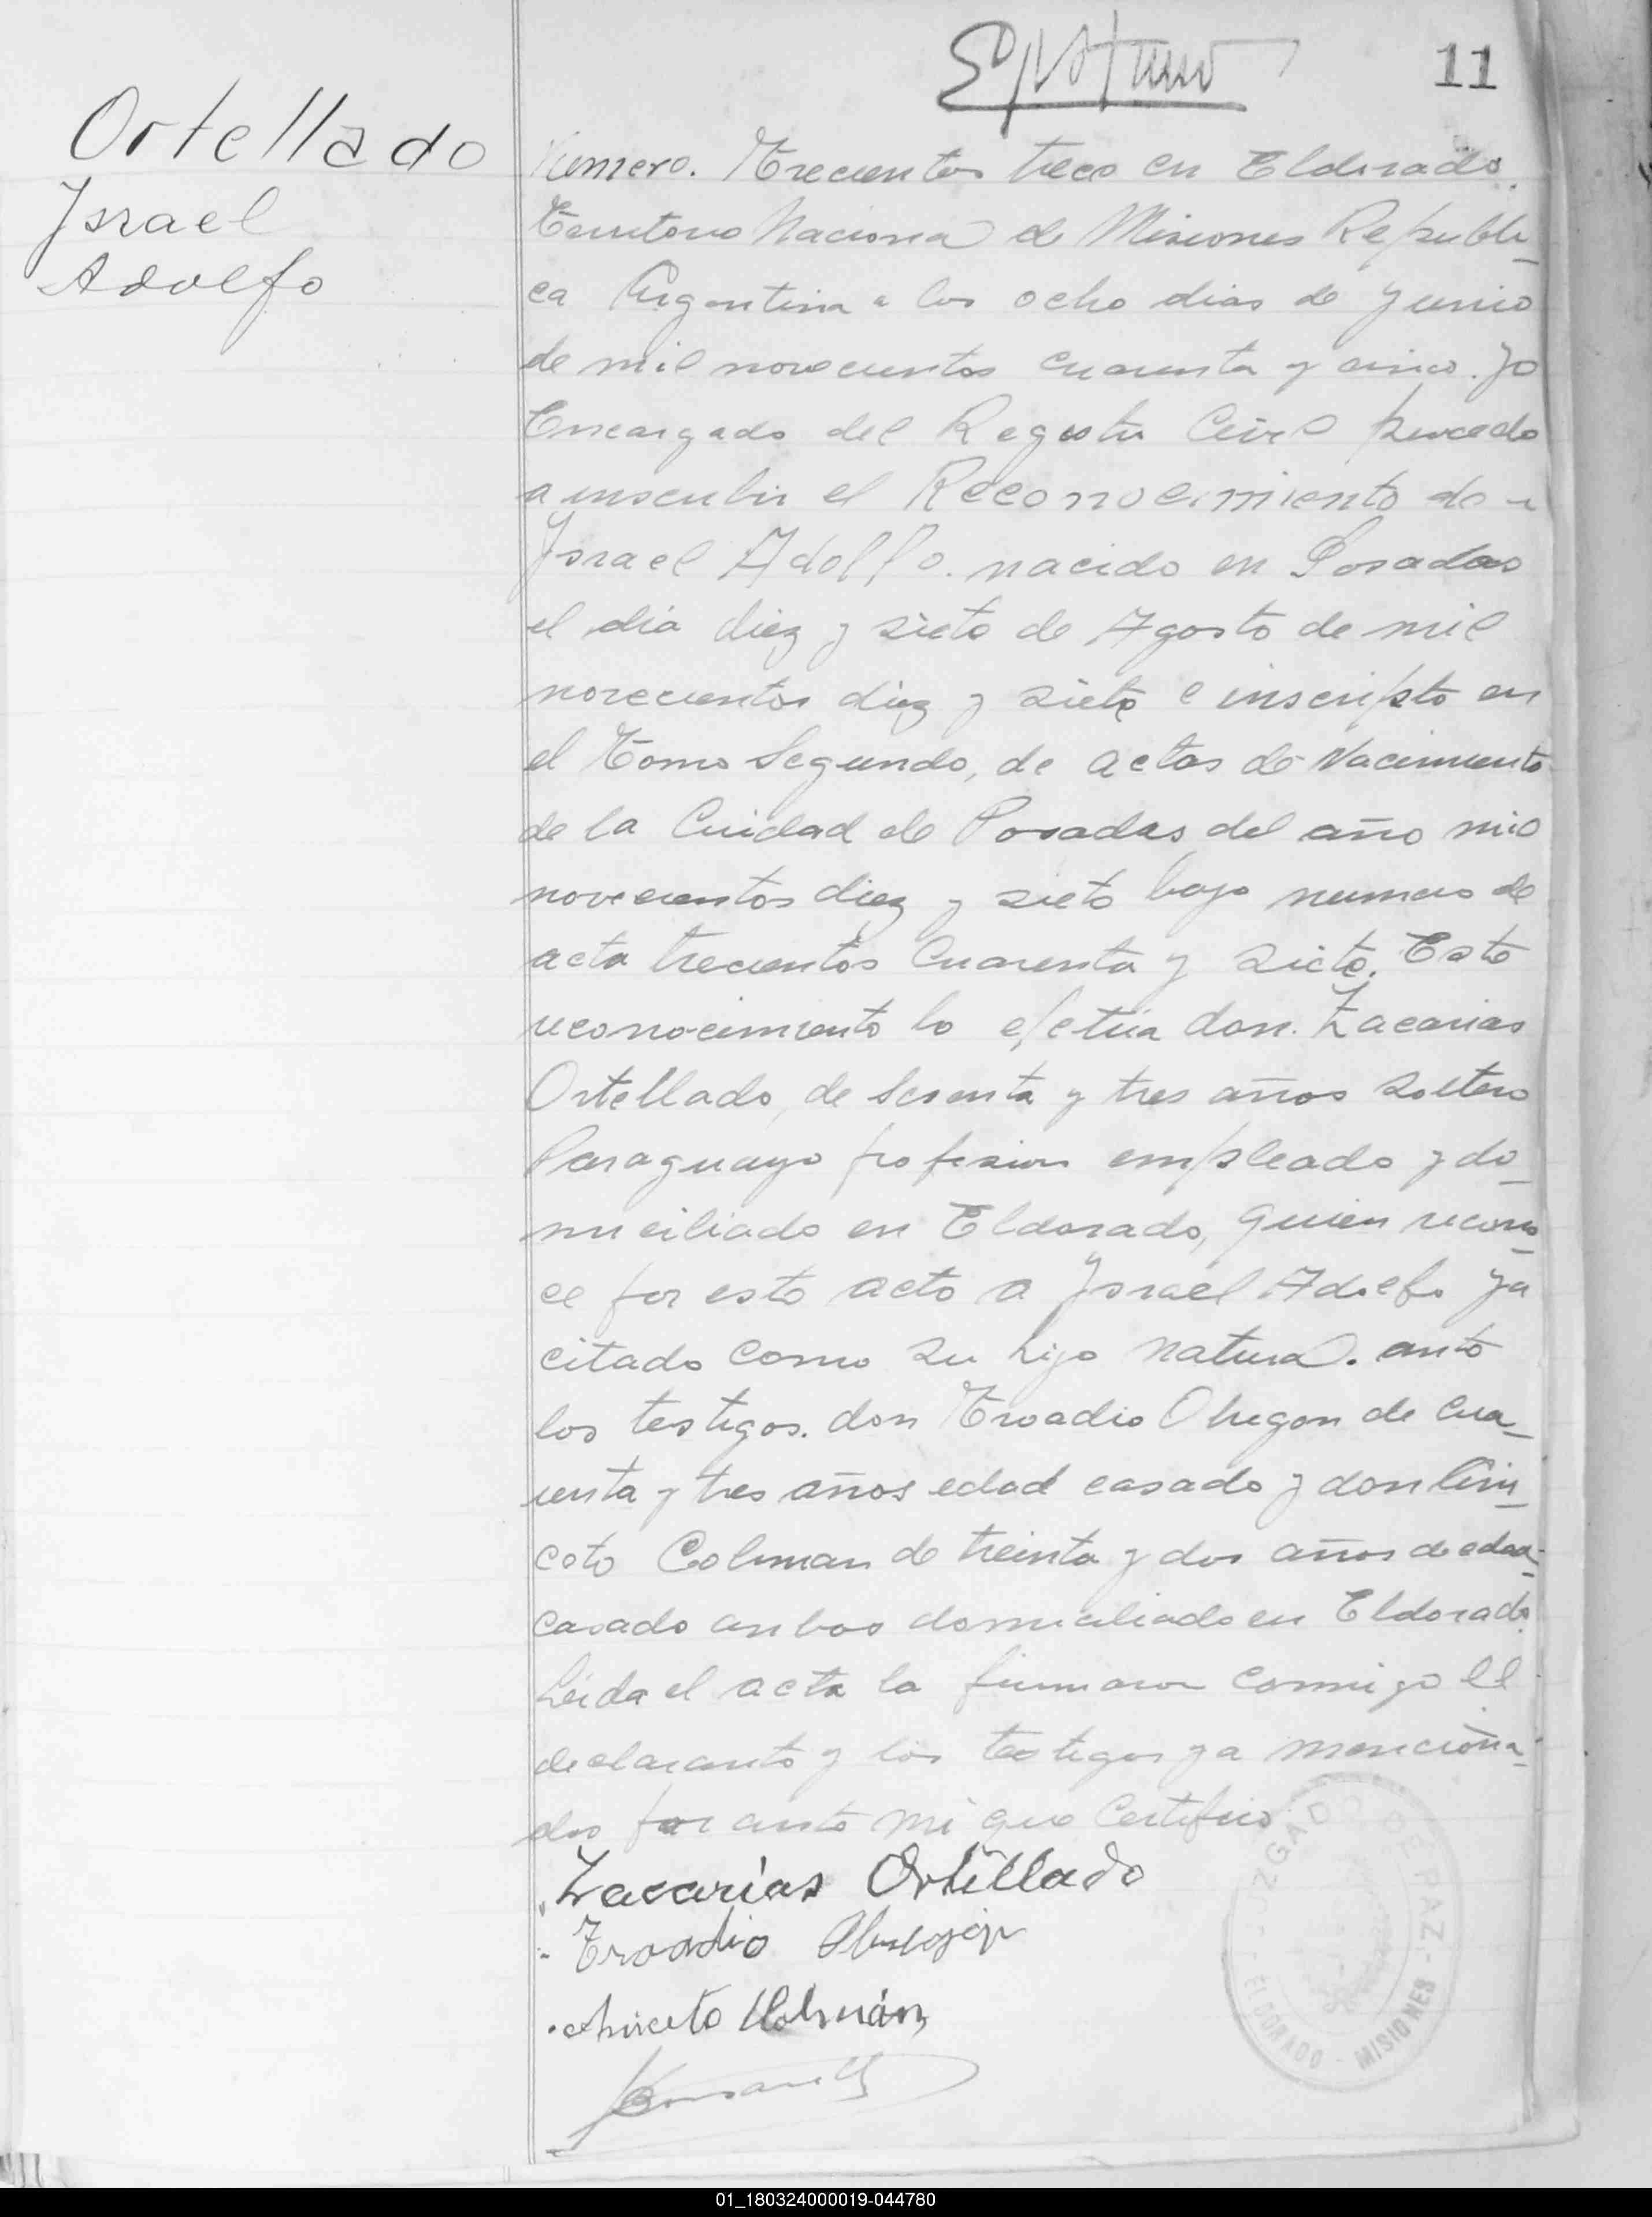 11
Ortellado
Israel
Adolfo
Número. Trecientos trece en Eldorado.
Territorio Naciona de Misiones Republi-
ca Argentina a los ocho dias de Junio
de mil novecientos cuarenta y cinco. Yo
Encargado del Registro Civil procedo
a inscribir el Reconocimiento de -
Israel Adolfo. nacido en Posadas
el dia diez y siete de Agosto de mil
novecientos diez y siete e inscripto en
el Tomo Segundo, de actas de Nacimiento
de la Cuidad de Posadas del año mil
novecientos diez y siete bajo numero de
acta trecientos Cuarenta y siete. Este
reconocimiento lo efctúa don. Zacarias
Ortellado, de sesenta y tres años soltero
Paraguayo profesion empleado y do-
miciliado en Eldorado, quien recono-
ce por este acto a Israel Adolfo ya
citado como su hijo natural. ante
los testigos. don Troadio Obregon de cua-
renta y tres años edad casado y don Ani-
ceto Colman de treinta y dos años de edad-
casado ambos domiciliado en Eldorado.
Leida el acta la firmaron conmigo el
declarante y los testigos ya menciona-
dos por ante mi que Certifico
Zacarías Ortellado
Troadio Obregón
Aniceto Colmán
JUZGADO DE PAZ
ELDORADO - MISIONES
01_180324000019-044780